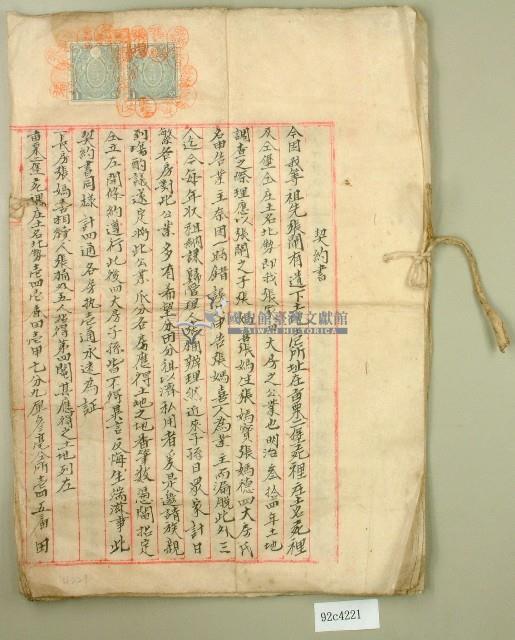 契約書
今因我等祖先張閣有遺下土地一所址在苗栗一堡苑裡庄土名苑裡
及仝堡仝庄土名北勢即我張家四大房之公業也明治叁拾四年土地
調查之際理應以張閣之子張媽喜張媽生張媽寶張媽德四大房氏
名申告業主奈因一時錯誤申告張媽喜一人為業主而漏脫此外三
人迄今每年收租納課歸管理人辦理然近來子孫日眾家計日
繁各房對此公業多有希望分田分租以濟私用者爰是邀請族親
到場酌議遂定將此公業瓜分各房應得土地之地番筆數憑鬮拈定
仝立左開條約遵行此後四大房子孫皆不得異言反悔生端滋事此
契約書同樣計四通各房執壱通永遠為証
一長房張媽喜相續人張五人得第四鬮其應得之土地列左
苗栗一堡苑裡庄土名北勢壱四壱番田壱甲七分九厘仝所壱四五番田
國史館臺灣文獻館
TAIWAN HISTORICA
92c4221